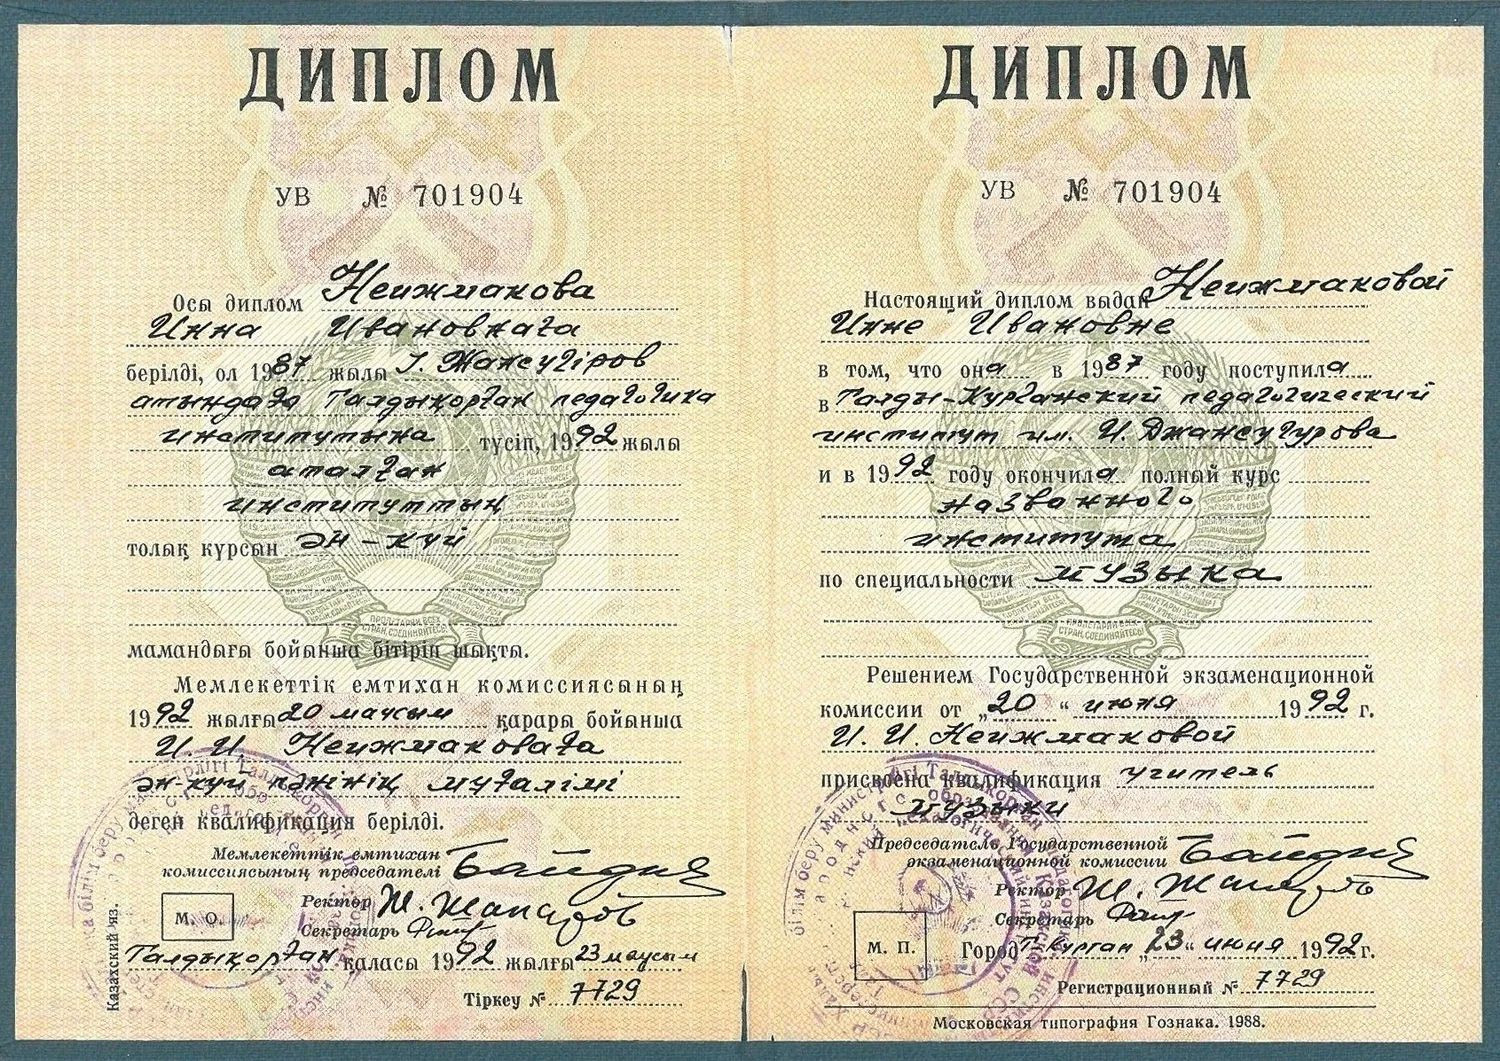 ДИПЛОМ
УВ № 701904
Осы диплом Неижмакова
Инна Ивановнаға
берілді, ол 1987 жылы І. Жансүгіров
атындағы Талдықорған педагогика
институтына түсіп, 1992 жылы
аталған
институттың
толық курсын ән-күй
мамандығы бойынша бітіріп шықты.
Мемлекеттік емтихан комиссиясының
1992 жылғы 20 маусым қарары бойынша
И. И. Неижмаковаға
ән-күй пәнінің мұғалімі
деген квалификация берілді.
Мемлекеттік емтихан
комиссиясының председателі
Ректор Ж. Жапаров
М. О.
Секретарь
Талдықорған қаласы 1992 жылғы 23 маусым
Тіркеу № 7729
Казахский яз.
ДИПЛОМ
УВ № 701904
Настоящий диплом выдан Неижмаковой
Инне Ивановне
в том, что она в 1987 году поступила
в Талды-Курганский педагогический
институт им. И. Джансугурова
и в 1992 году окончила полный курс
названного
института
по специальности музыка
Решением Государственной экзаменационной
комиссии от „20“ июня 1992 г.
И. И. Неижмаковой
присвоена квалификация учитель
музыки
Председатель Государственной
экзаменационной комиссии
Ректор Ж. Жапаров
Секретарь
М. П.
Город Т-Курган „23“ июня 1992 г.
Регистрационный № 7729
Московская типография Гознака. 1988.